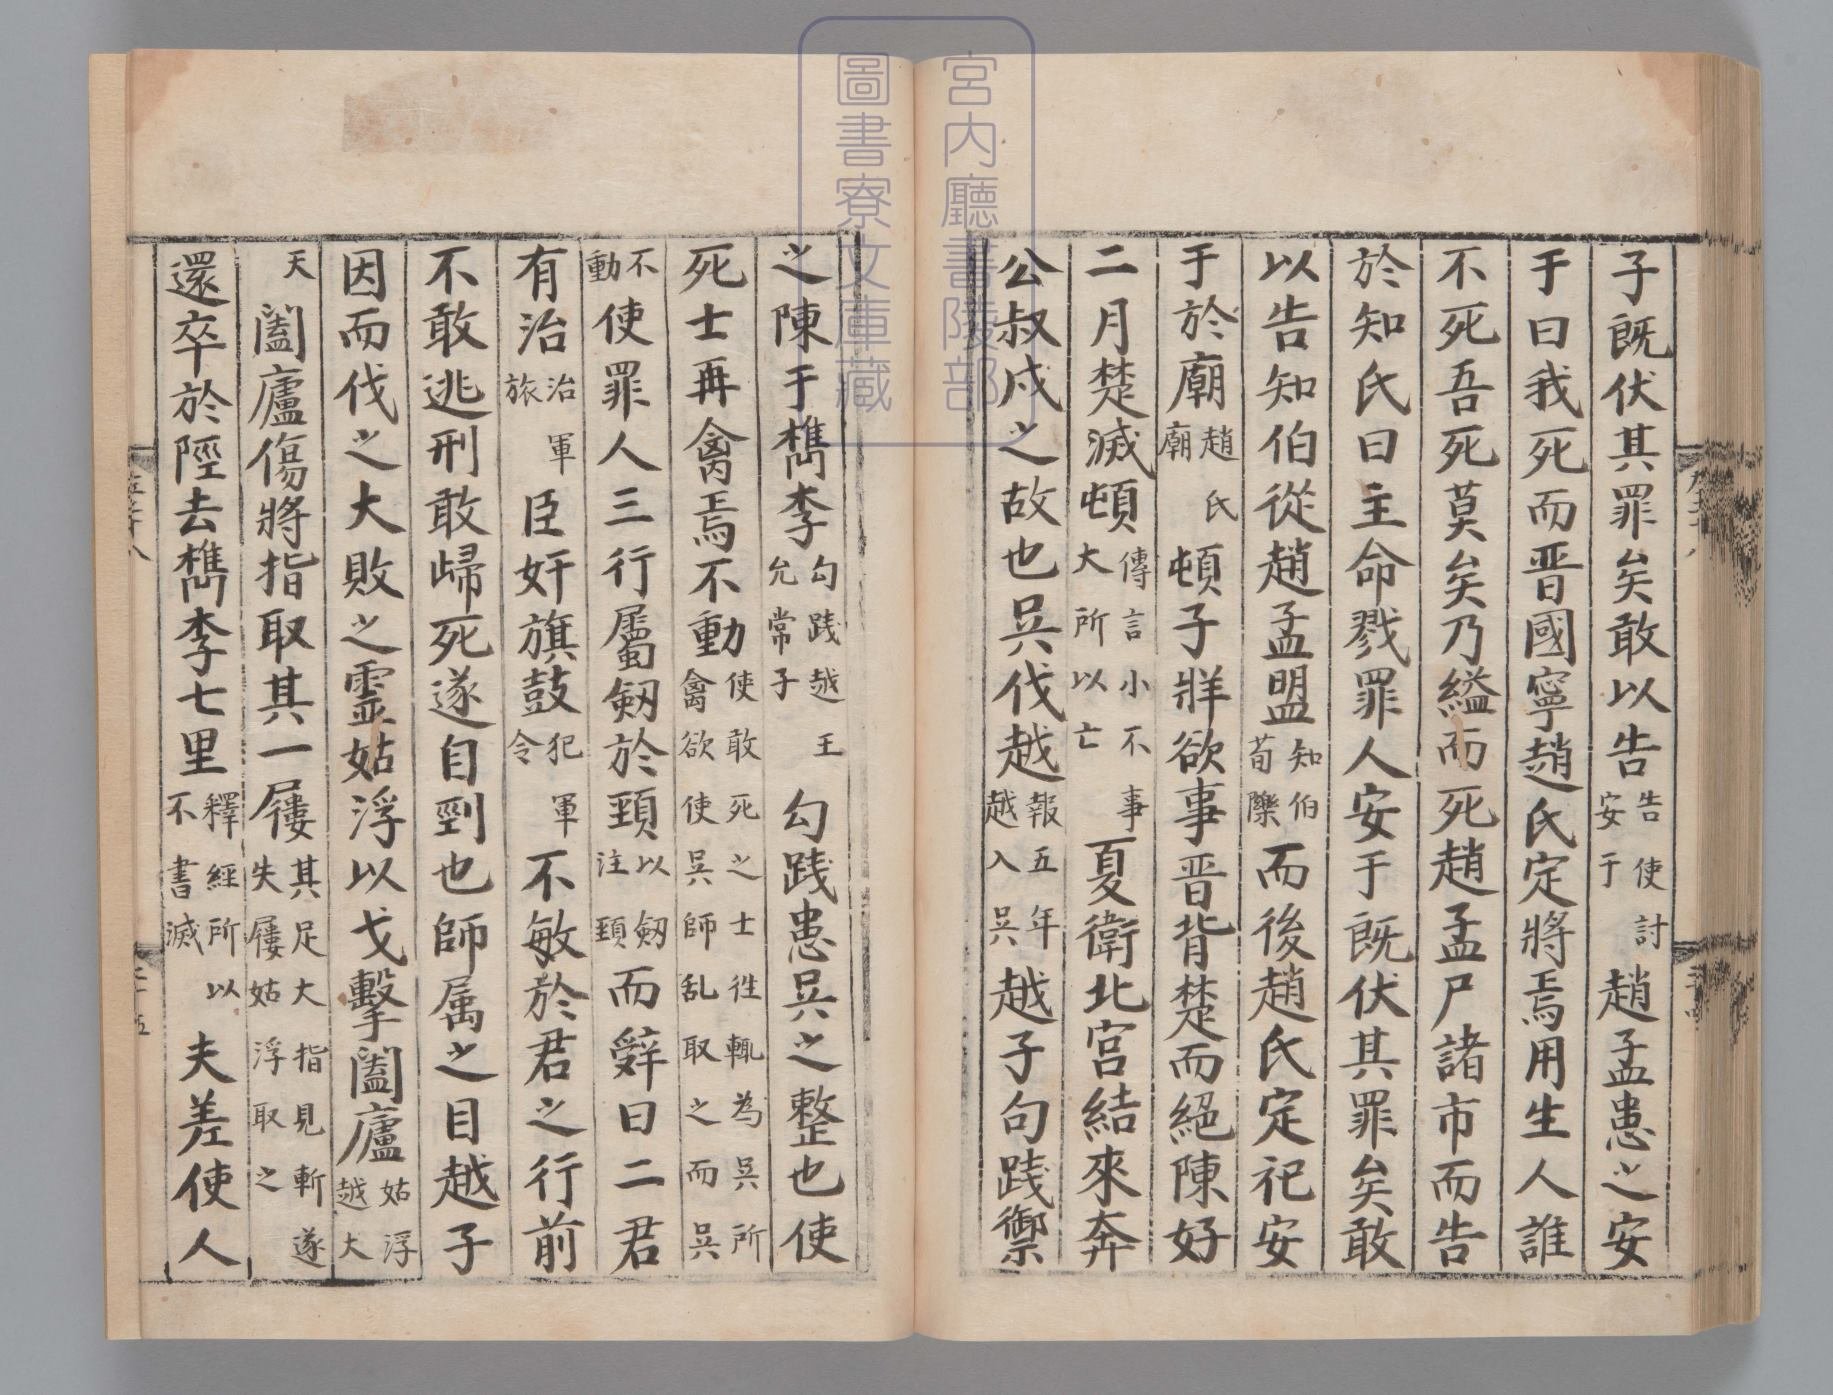 子既伏其罪矣敢以告告使討安于趙孟患之安
于曰我死而晋國寧趙氏定將焉用生人誰
不死吾死莫矣乃縊而死趙孟尸諸市而告
於知氏曰主命戮罪人安于既伏其罪矣敢
以告知伯從趙孟盟知伯荀躒而後趙氏定祀安
于於廟趙氏廟頓子牂欲事晋背楚而絕陳好
二月楚滅頓傳言小不事大所以亡夏衛北宮結來奔
公叔戍之故也吳伐越報五年越入吳越子句踐禦
之陳于檇李勾踐越王允常子勾踐患吳之整也使
死士再禽焉不動使敢死之士徃輒為吳所禽欲使吳師乱取之而吳
不動使罪人三行屬劒於頸以劒注頸而辭曰二君
有治治軍旅臣奸旗鼓犯軍令不敏於君之行前
不敢逃刑敢歸死遂自剄也師属之目越子
因而伐之大敗之靈姑浮以戈擊闔廬姑浮越大
天闔廬傷將指取其一屨其足大指見斬遂失屨姑浮取之
還卒於陘去檇李七里釋經所以不書滅夫差使人
宮內廳書陵部
圖書寮文庫藏